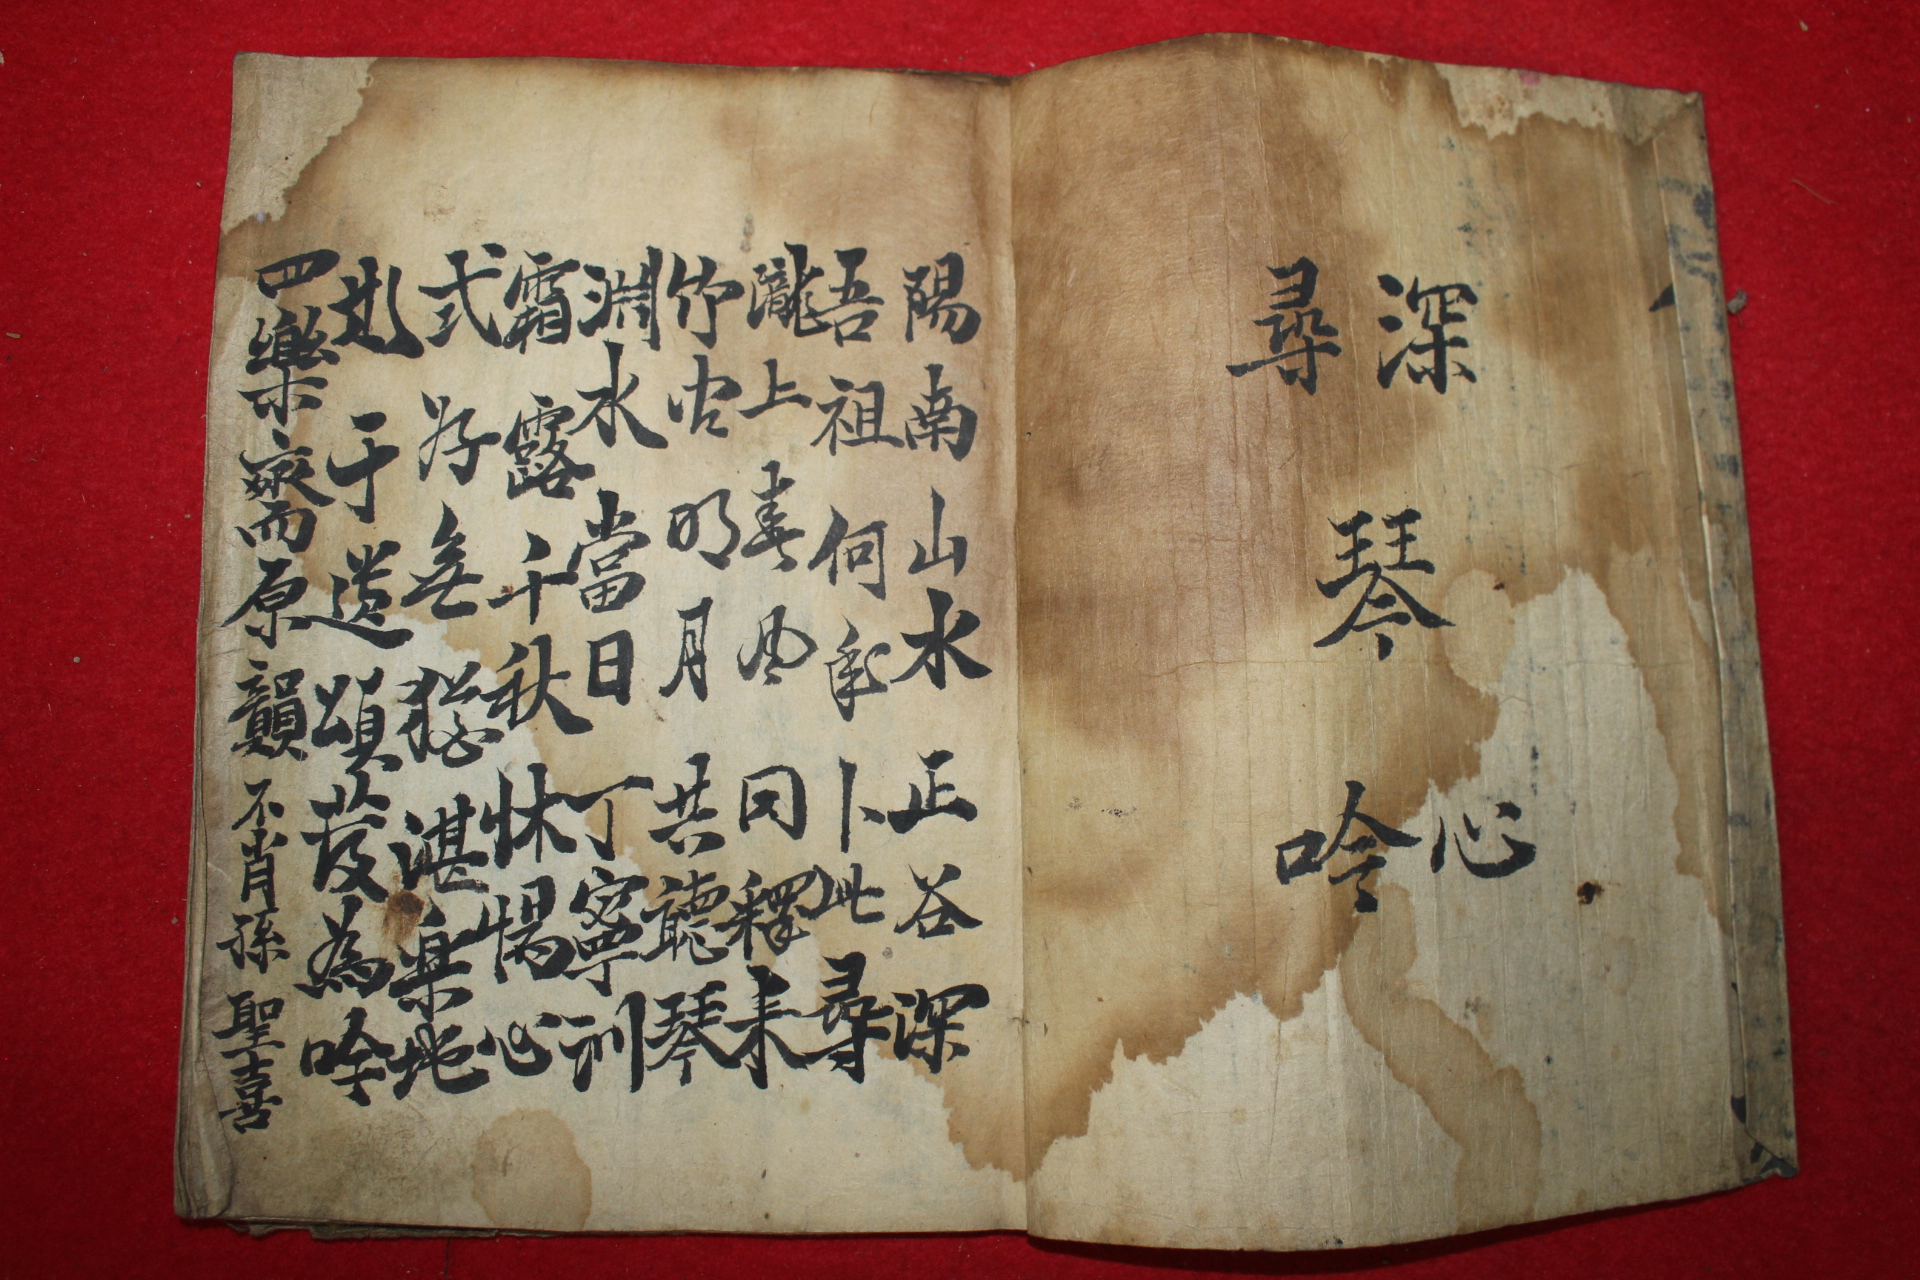 深尋
琴
心吟
陽南山水正谷深
吾祖何年卜此尋
瀧上春風同釋耒
竹明月共聽琴
淵水當日丁寧訓
霜露千秋怵惕心
式好無猶湛樂地
干遺頌發為吟
四樂齋原韻 不肖孫 聖喜